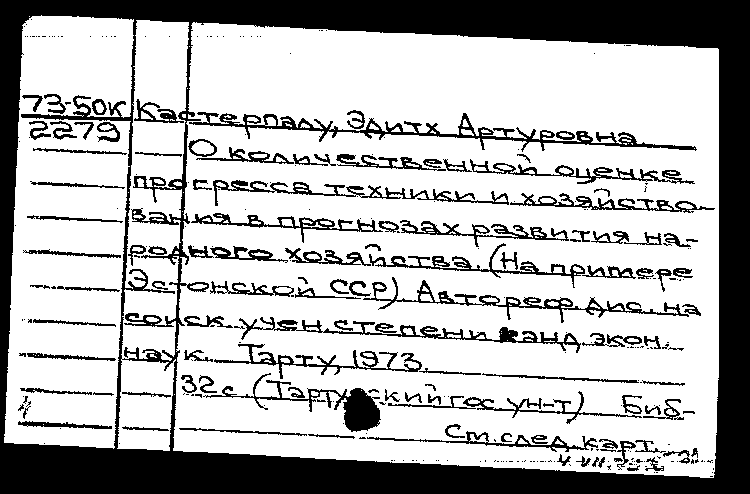 73-50к Кастерпалу, Эдитх Артуровна.
2279
О количественной оценке
прогресса техники и хозяйство-
вания в прогнозах развития на-
родного хозяйства. (На примере
Эстонской ССР) Автореф. дис. на
соиск. учен. степени канд. экон.
наук. Тарту, 1973.
32 с. (Тартуский гос. ун-т) Биб-
См. след. карт.